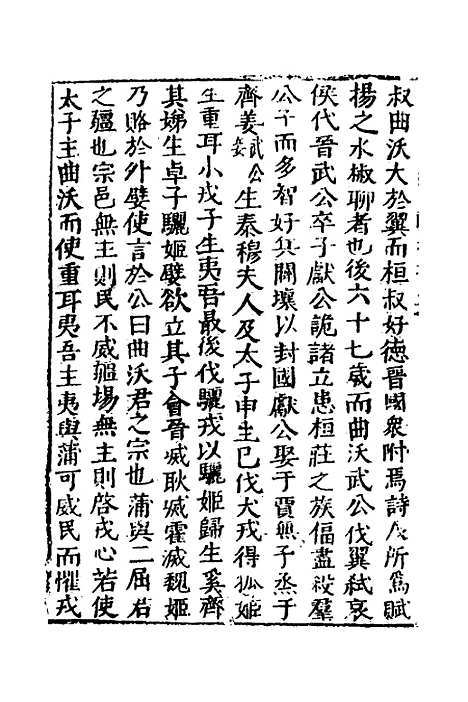 叔曲沃大於翼而桓叔好德晉國衆附焉詩人所爲賦
揚之水椒聊者也後六十七歲而曲沃武公伐翼弑哀
侯代晉武公卒子獻公詭諸立患桓莊之族偪盡殺羣
公子而多智好兵闢壤以封國獻公娶于賈無子烝于
齊姜武公妾生秦穆夫人及太子申生已伐犬戎得狐姬
生重耳小戎子生夷吾最後伐驪戎以驪姬歸生奚齊
其娣生卓子驪姬嬖欲立其子會晉滅耿滅霍滅魏姬
乃賂於外嬖使言於公曰曲沃君之宗也蒲與二屈君
之疆也宗邑無主則民不威疆場無主則啓戎心若使
太子主曲沃而使重耳夷吾主夷與蒲可威民而懼戎